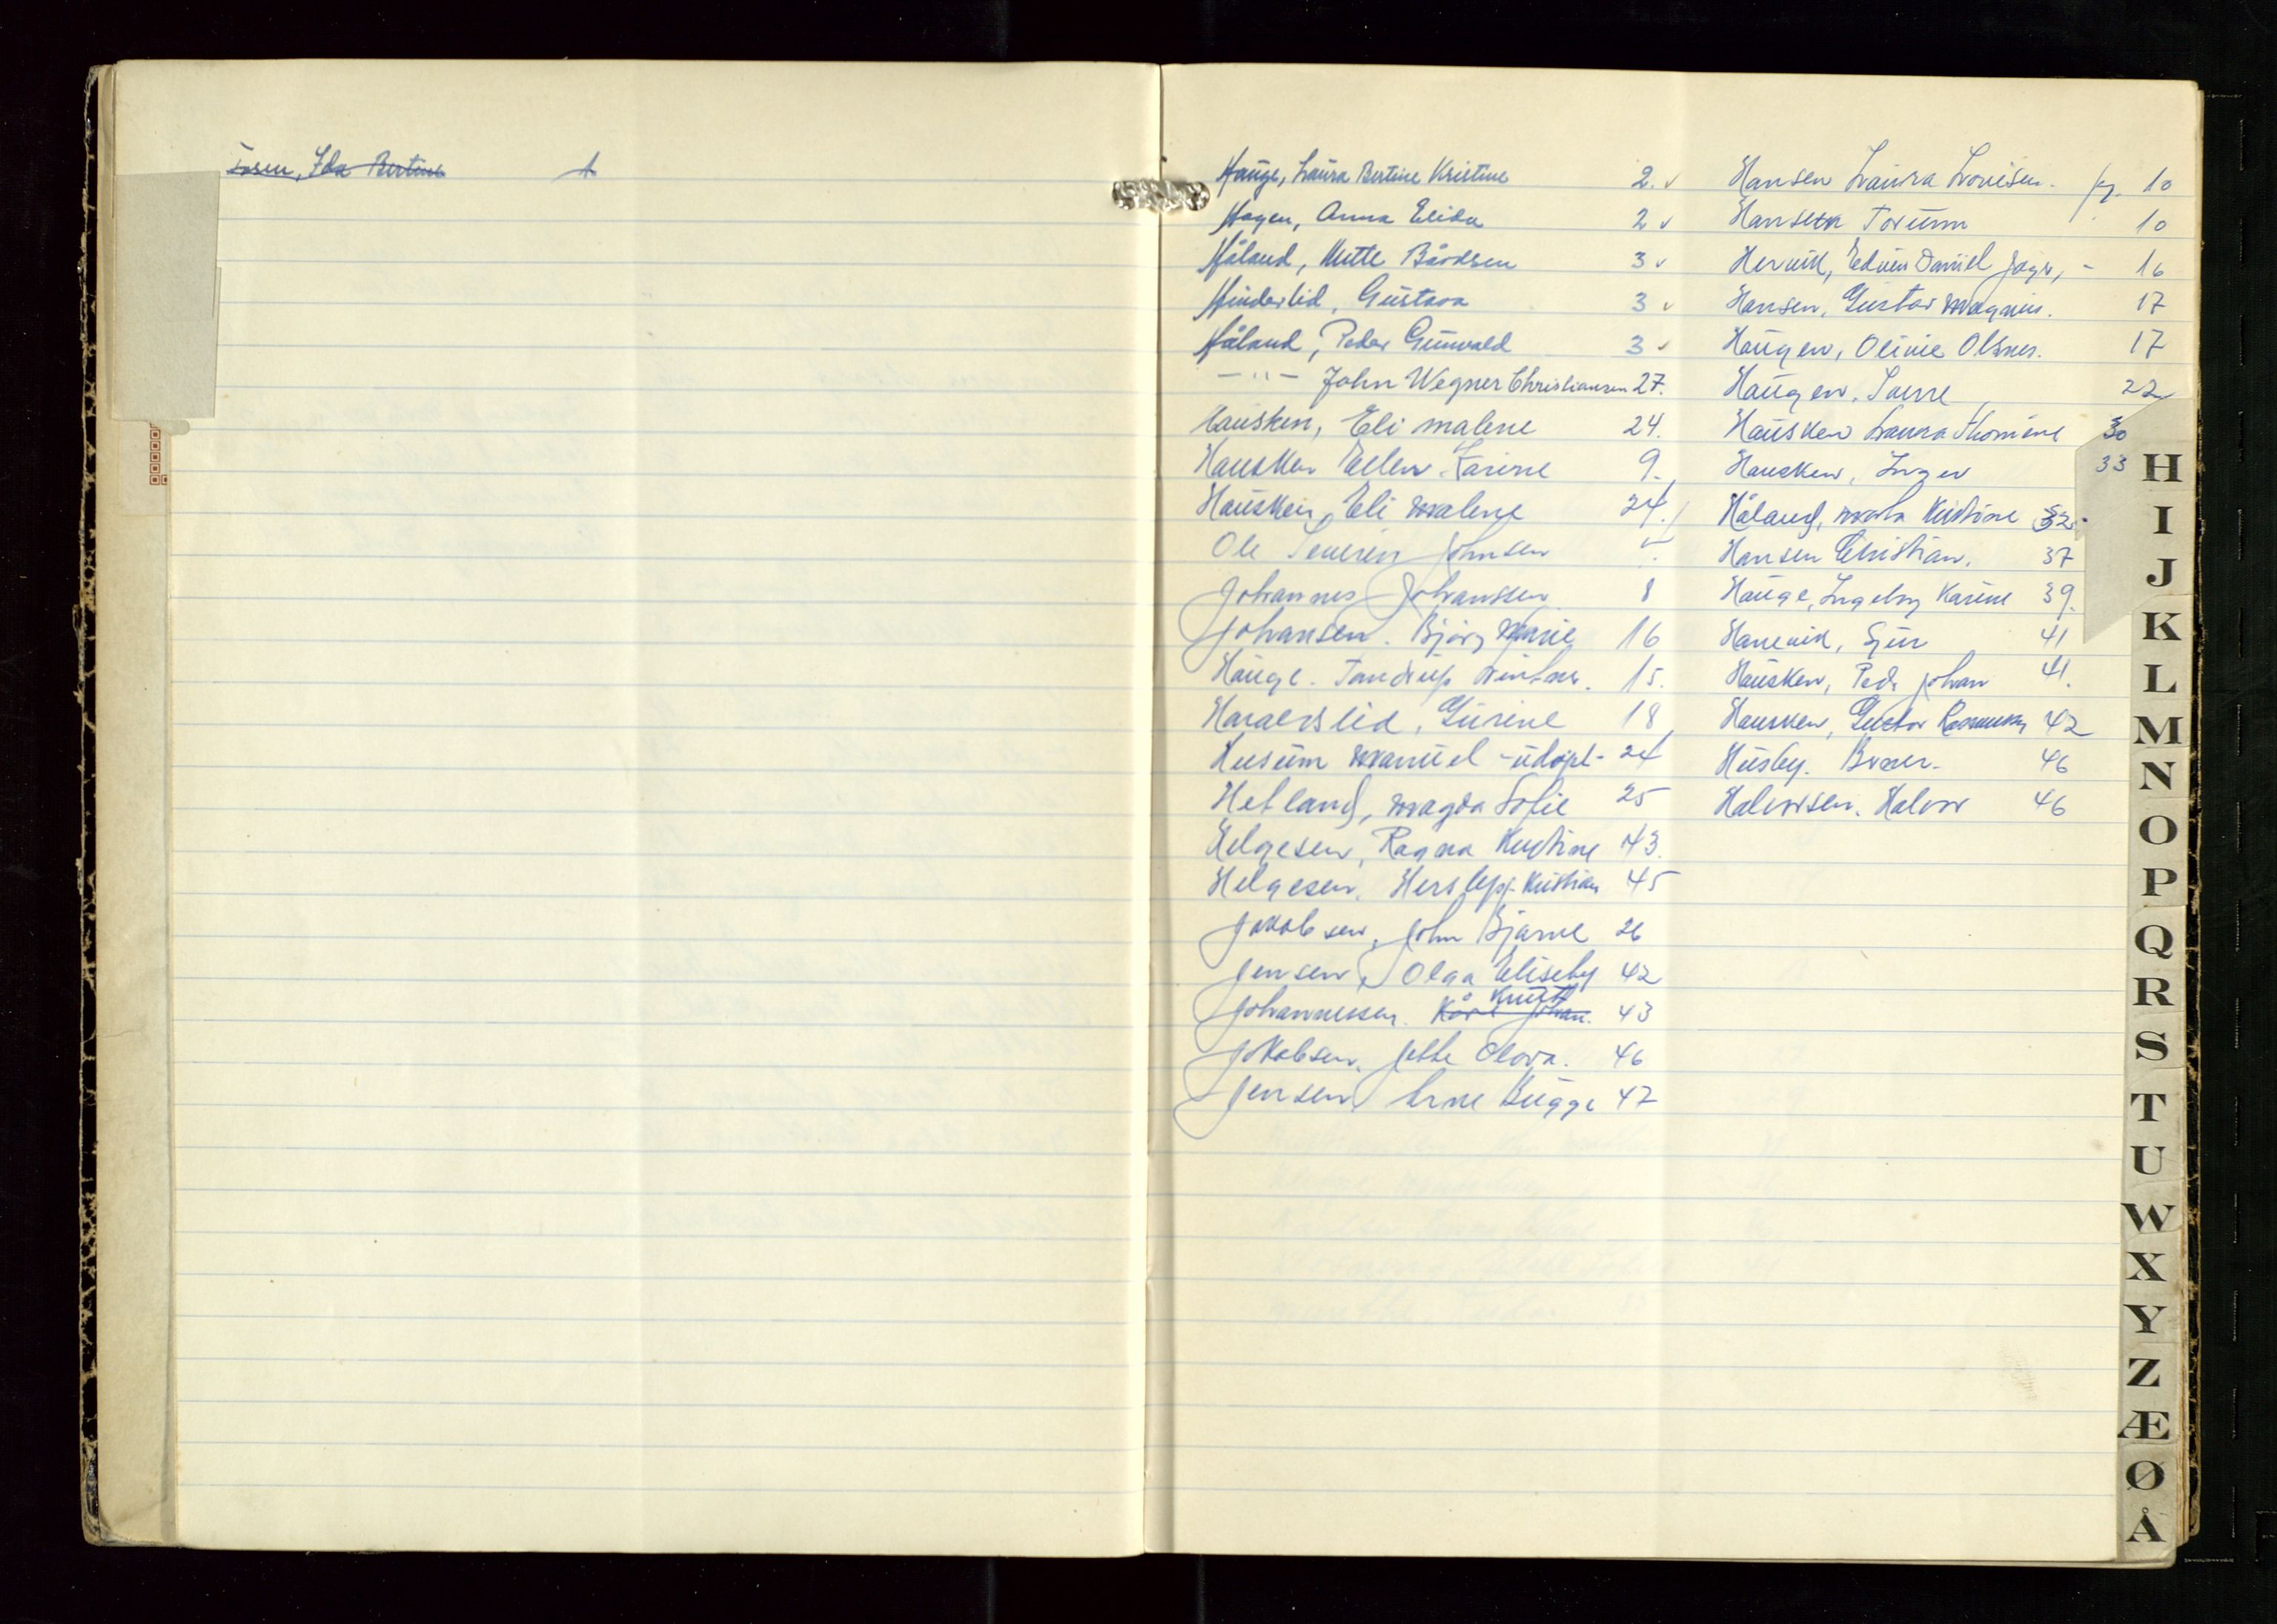 Iosen, Ida Bertine 1
Hauge, Laura Bertine Kristine 2. v
Hagen, Anna Elida 2 v
Håland, Mette Bårdsen 3 v
Hinderlid, Gustava 3 v
Håland, Peder Gunvald 3 v
— " — John Wegner Christiansen 27.
Hausken, Eli malene 24.
Hausken Ellen Karine 9.
Hausken, Eli malene 24.
Ole Severin Johnsen
Johannes Johanssen 8
Johansen. Bjørg Marie 16
Hauge. Tandrup 15.
Haraldslid, Gurine 18
Husum manuel - udøpt - 24
Hetland, magda Sofie 25
Helgesen, Ragna Kristine 43.
Helgesen. Herslepp Kristian 45
Jakobsen, John Bjarne 26
Jensen, Olga Eliseby 42
Knut
Johannessen. Kåre Johan. 43
Jakobsen. Jette Olova. 46
Jensen, Arne Bugge 47
Hansen Laura Lovise. pg. 10
Hansen Torunn 10
Hervik, Edvin Daniel - 16
Hansen, Gustav Magnus. 17
Haugen, Oline Olsen. 17
Haugen. 22
Hausken Laura Thomine 30
Hausken, Inger 33
Håland, marta Kristine 32.
Hansen Christian. 37
Hauge, Ingeborg Karine 39.
Hanevik, Sjur 41
Hausken, Peder Johan 41.
Hausken, Gustav Rasmussen 42
Husby. 46
Halvorsen. Halvor 46
H
I
J
K
L
M
N
O
P
Q
R
S
T
U
W
X
Y
Z
Æ
Ø
Å